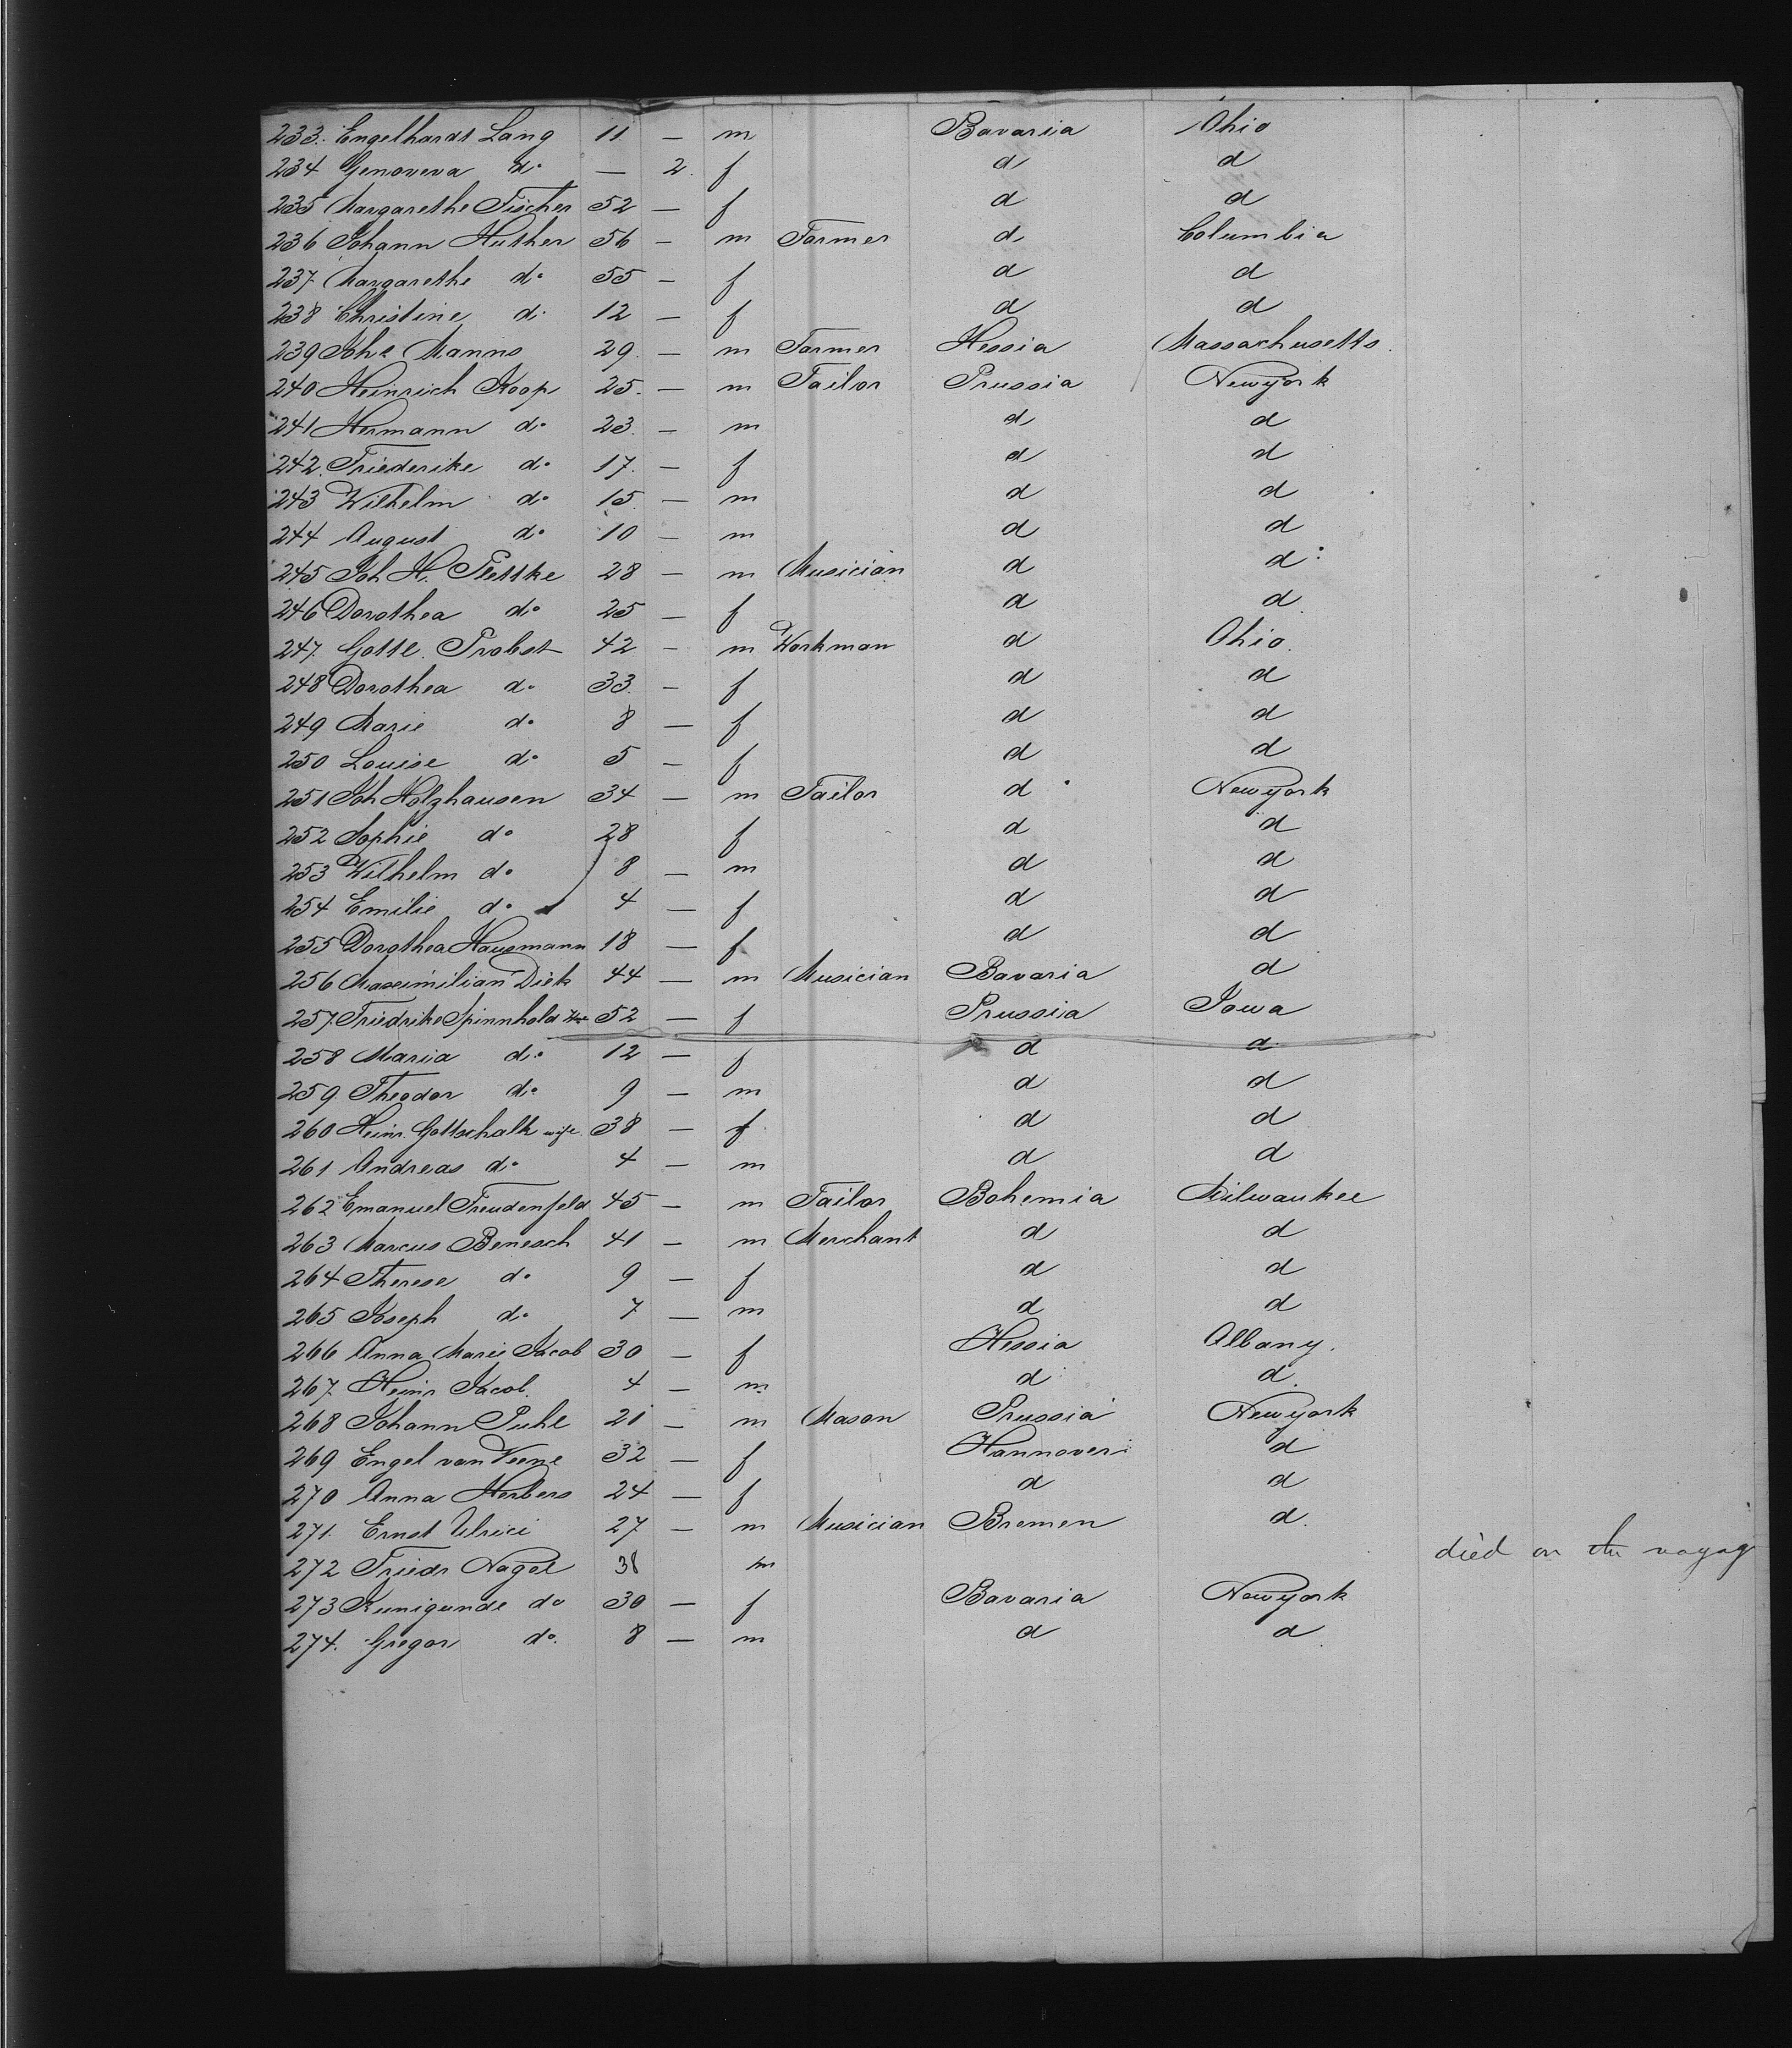 233. Engelhardt Lang 11 — m Bavaria Ohio
234 Genoveva do — 2 f d d
235 Margarethe Fischer 52 — f d d
236 Johann Huther 56 — m Farmer d Columbia
237 Margarethe do 55 — f d d
238 Christine do 12 — f d d
239 Johs Manns 29 — m Farmer Hessia Massachusetts
240 Heinrich Koop 25 — m Tailor Prussia Newyork
241 Hermann do 23 — m d d
242 Friederike do 17 — f d d
243 Wilhelm do 15 — m d d
244 August do 10 — m d d
245 Joh H. Plettke 28 — m Musician d d
246 Dorothea do 25 — f d d
247 Gottl. Probst 42 — m Workman d Ohio
248 Dorothea do 33 — f d d
249 Marie do 8 — f d d
250 Louise do 5 — f d d
251 Joh Holzhausen 34 — m Tailor d Newyork
252 Sophie do 28 f d d
253 Wilhelm do 8 — m d d
254 Emilie do 4 — f d d
255 Dorothea Hausmann 18 — f d d
256 Maximilian Dick 44 — m Musician Bavaria d
257 Friedrike Spinnhold 52 — f Prussia Iowa
258 Maria do 12 — f d d
259 Theodor do 9 — m d d
260 Heinr. Gottschalk wife 38 — f d d
261 Andreas do 4 — m d d
262 Emanuel Freudenfeld 45 — m Tailor Bohemia Milwaukee
263 Marcus Benesch 41 — m Merchant d d
264 Therese do 9 — f d d
265 Joseph do 7 — m d d
266 Anna Marie Jacob 30 — f Hessia Albany.
267 Heinr Jacob 4 — m d d
268 Johann Puhl 21 — m Mason Prussia Newyork
269 Engel van Veene 32 — f Hannover d
270 Anna Herbers 24 — f d d
271. Ernst Ulrici 27 — m Musician Bremen d
272 Friedr Nagel 38 m died on the voyag
273 Kunigunde do 30 — f Bavaria Newyork
274. Gregor do. 8 — m d d